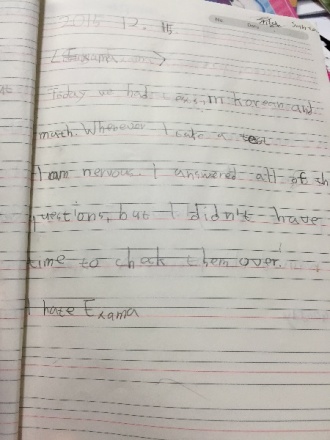 2015 12.
< Exams >
Today we had exam korean and
math. Whenever I take a test
I am nervous. I answered all of th
questions, but I didn't have
time to chak them over.
I hate Exama